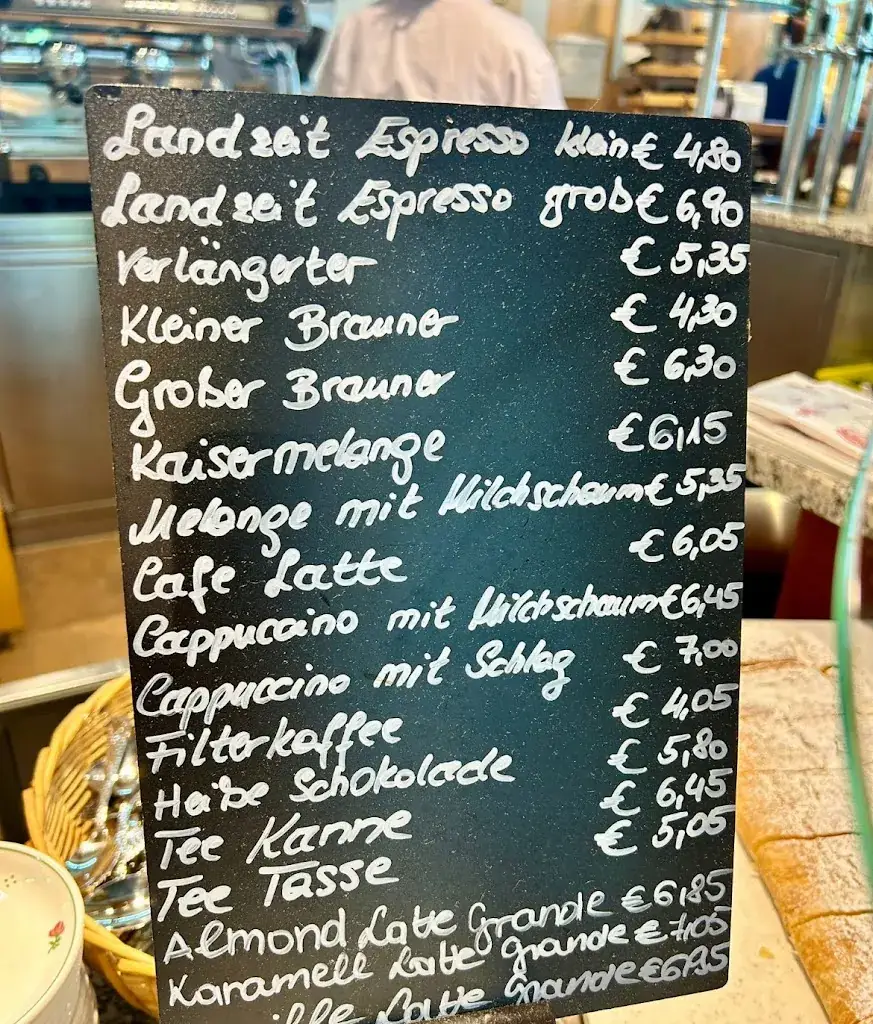 Landzeit Espresso klein € 4,80
Landzeit Espresso groß € 6,90
Verlängerter € 5,35
Kleiner Brauner € 4,30
Großer Brauner € 6,30
Kaisermelange € 6,15
Melange mit Milchschaum € 5,35
Cafe Latte € 6,05
Cappuccino mit Milchschaum € 6,45
Cappuccino mit Schlag € 7,00
Filterkaffee € 4,05
Heiße Schokolade € 5,80
Tee Kanne € 6,45
Tee Tasse € 5,05
Almond Latte Grande € 6,85
Karamell Latte Grande € 7,05
Latte Grande € 6,95